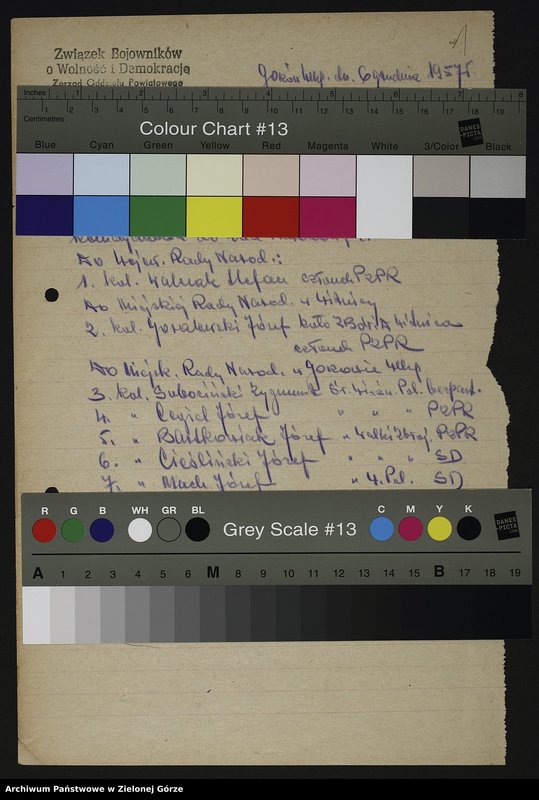 1
Związek Bojowników
o Wolność i Demokrację
Zarząd Oddziału Powiatowego
Gorzów Wlkp. dn. 6 grudnia 1957 r.
Inches 1 2 3 4 5 6 7 8
Centimetres 1 2 3 4 5 6 7 8 9 10 11 12 13 14 15 16 17 18 19
Colour Chart #13
DANES-PICTA
Blue Cyan Green Yellow Red Magenta White 3/Color Black
Do Wojew. Rady Narod.:
1. kol. Walczak Stefan członek PZPR
Do Miejskiej Rady Narod. w Witnicy
2. kol. Józef koło ZBoWiD Witnica
członek PZPR
Do Miejsk. Rady Narod. w Gorzowie Wlkp.
3. kol. Zygmunt Pol. bezpart.
4. " Józef " " " PZPR
5. " Bartkowiak Józef " Walki Zbroj. PZPR
6. " Cieśliński Józef " " " SD
7. " Mach Józef " W. Pol. SD
R G B WH GR BL
Grey Scale #13
C M Y K
DANES-PICTA.COM
A 1 2 3 4 5 6 M 8 9 10 11 12 13 14 15 B 17 18 19
Archiwum Państwowe w Zielonej Górze